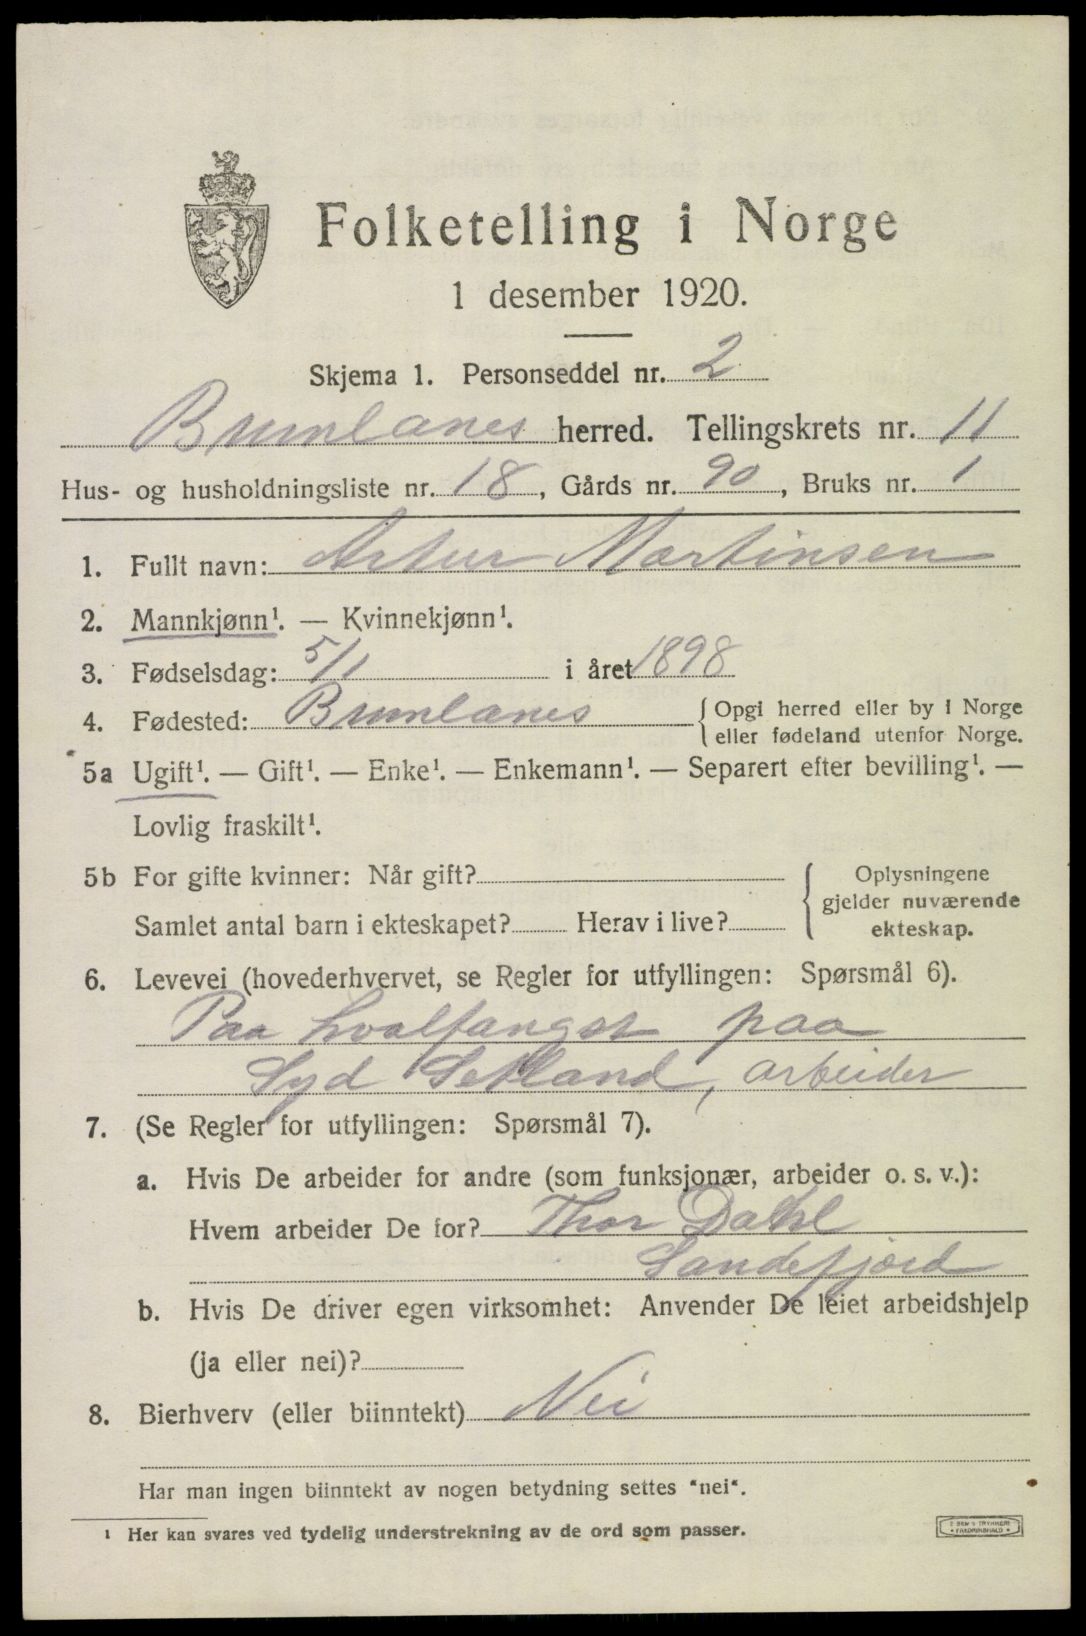 Folketelling i Norge
1 desember 1920.
Skjema 1. Personseddel nr. 2
Brunlanes herred. Tellingskrets nr. 11
Hus- og husholdningsliste nr. 18, Gårds nr. 90, Bruks nr. 1
1. Fullt navn: Artur Martinsen
2. Mannkjønn¹. — Kvinnekjønn¹.
3. Fødselsdag: 5/1 i året 1898
4. Fødested: Brunlanes { Opgi herred eller by i Norge
eller fødeland utenfor Norge.
5a Ugift¹. — Gift¹. — Enke¹. — Enkemann¹. — Separert efter bevilling¹. —
Lovlig fraskilt¹.
5b For gifte kvinner: Når gift? { Oplysningene
gjelder nuværende
Samlet antal barn i ekteskapet? Herav i live? ekteskap.
6. Levevei (hovederhvervet, se Regler for utfyllingen: Spørsmål 6).
Paa hvalfangst paa
Syd Setland, arbeider
7. (Se Regler for utfyllingen: Spørsmål 7).
a. Hvis De arbeider for andre (som funksjonær, arbeider o. s. v.):
Hvem arbeider De for? Thor Dahl
Sandefjord
b. Hvis De driver egen virksomhet: Anvender De leiet arbeidshjelp
(ja eller nei)?
8. Bierhverv (eller biinntekt) Nei
Har man ingen biinntekt av nogen betydning settes "nei".
¹ Her kan svares ved tydelig understrekning av de ord som passer.